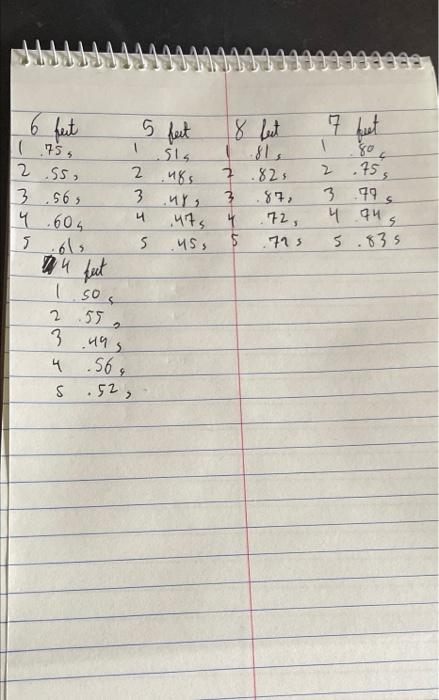 6 feet 5 feet 8 feet 7 feet
1 .75s 1 .51s 1 .81s 1 .80s
2 .55s 2 .48s 2 .82s 2 .75s
3 .56s 3 .48s 3 .87s 3 .79s
4 .60s 4 .47s 4 .72s 4 .94s
5 .61s 5 .45s 5 .79s 5 .83s
4 feet
1 .50s
2 .55s
3 .49s
4 .56s
5 .52s